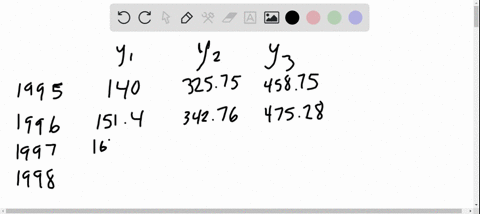 y1 y2 y3
1995 140 325.75 458.75
1996 151.4 342.76 475.28
1997 16
1998